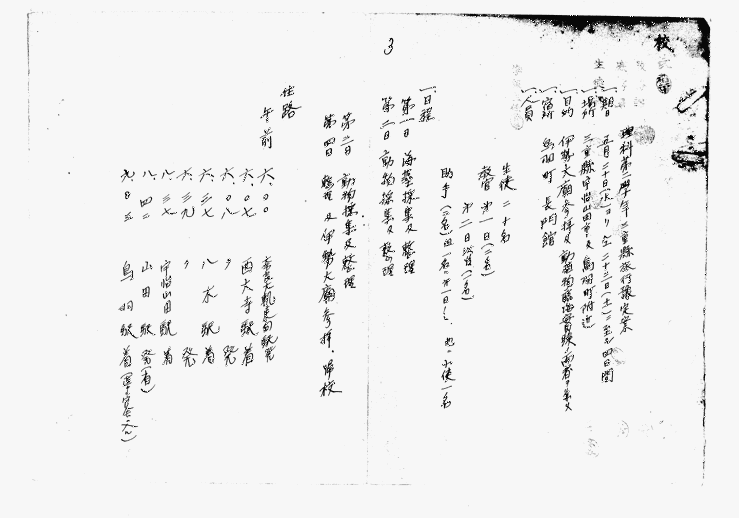 3
校
理科第二學年三重縣旅行豫定案
一、期日 五月二十日(水)ヨリ仝二十三日(土)ニ至ル四日間
一、場所 三重縣宇治山田市及鳥羽町附近
一、目的 伊勢大廟参拝及動植物臨海實驗ノ両者ヲ兼ヌ
一、宿所 鳥羽町 長門館
一、人員
生徒 二十名
教官 第一日(三名)
第二日以後(二名)
助手(二名)
一、日程
第一日 海藻採集及整理
第二日 動物採集及整理
第三日 動物採集及整理
第四日 整理及伊勢大廟参拝、歸校
往路
午前
六、〇〇
六、〇七 西大寺駅着
六、〇八 〃 発
六、三七 八木駅着
六、三九 〃 発
八、三七 宇治山田駅着
八、四二 山田駅発
九、〇三 鳥羽駅着